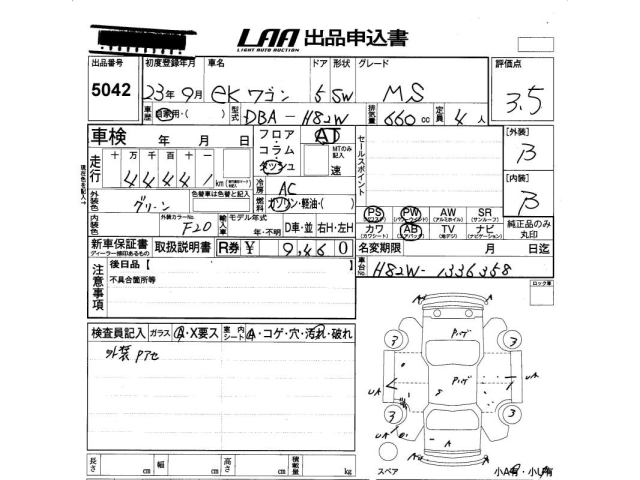 LAA 出品申込書
LIGHT AUTO AUCTION
出品番号 初度登録年月 車名 ドア 形状 グレード 評価点
5042 23年9月 eKワゴン 5 SW MS 3.5
車歴 自家用・( ) 型式 DBA-H82W 排気量 660cc 定員 4人
車検 年 月 日 フロア・コラム・ダッシュ AT MTのみ記入 速 セールスポイント [外装] B
走行 十 万 千 百 十 一
4 4 4 4 1 km
現在色を記入
冷房 AC
[内装] B
外装色 グリーン 色替車は色替と記入 燃料 ガソリン・軽油・( )
PS PW AW SR
(パワステ) (パワーウインド) (アルミホイル) (サンルーフ)
純正品のみ丸印
内装色 外装カラーNo. F20 輸入車 モデル年式 年・不明 D車・並 右H・左H
カワ AB TV ナビ
(カワシート) (エアバック) (地デジ) (ナビゲーション)
新車保証書 取扱説明書 R券 ¥ 9,460 名変期限 月 日迄
ディーラー捺印あるもの
車台No. H82W-1336358
注意事項 後日品【 】
不具合箇所等
ロック車
検査員記入 ガラス A・X要ス 室内シート A・コゲ・穴・汚れ・破れ
外装Pアセ
長さ cm 幅 cm 高さ cm 積載量 kg
AU
Pハゲ
3 3
Pハゲ
UA UA
3 3
UA
A
スペア
小A有・小U有